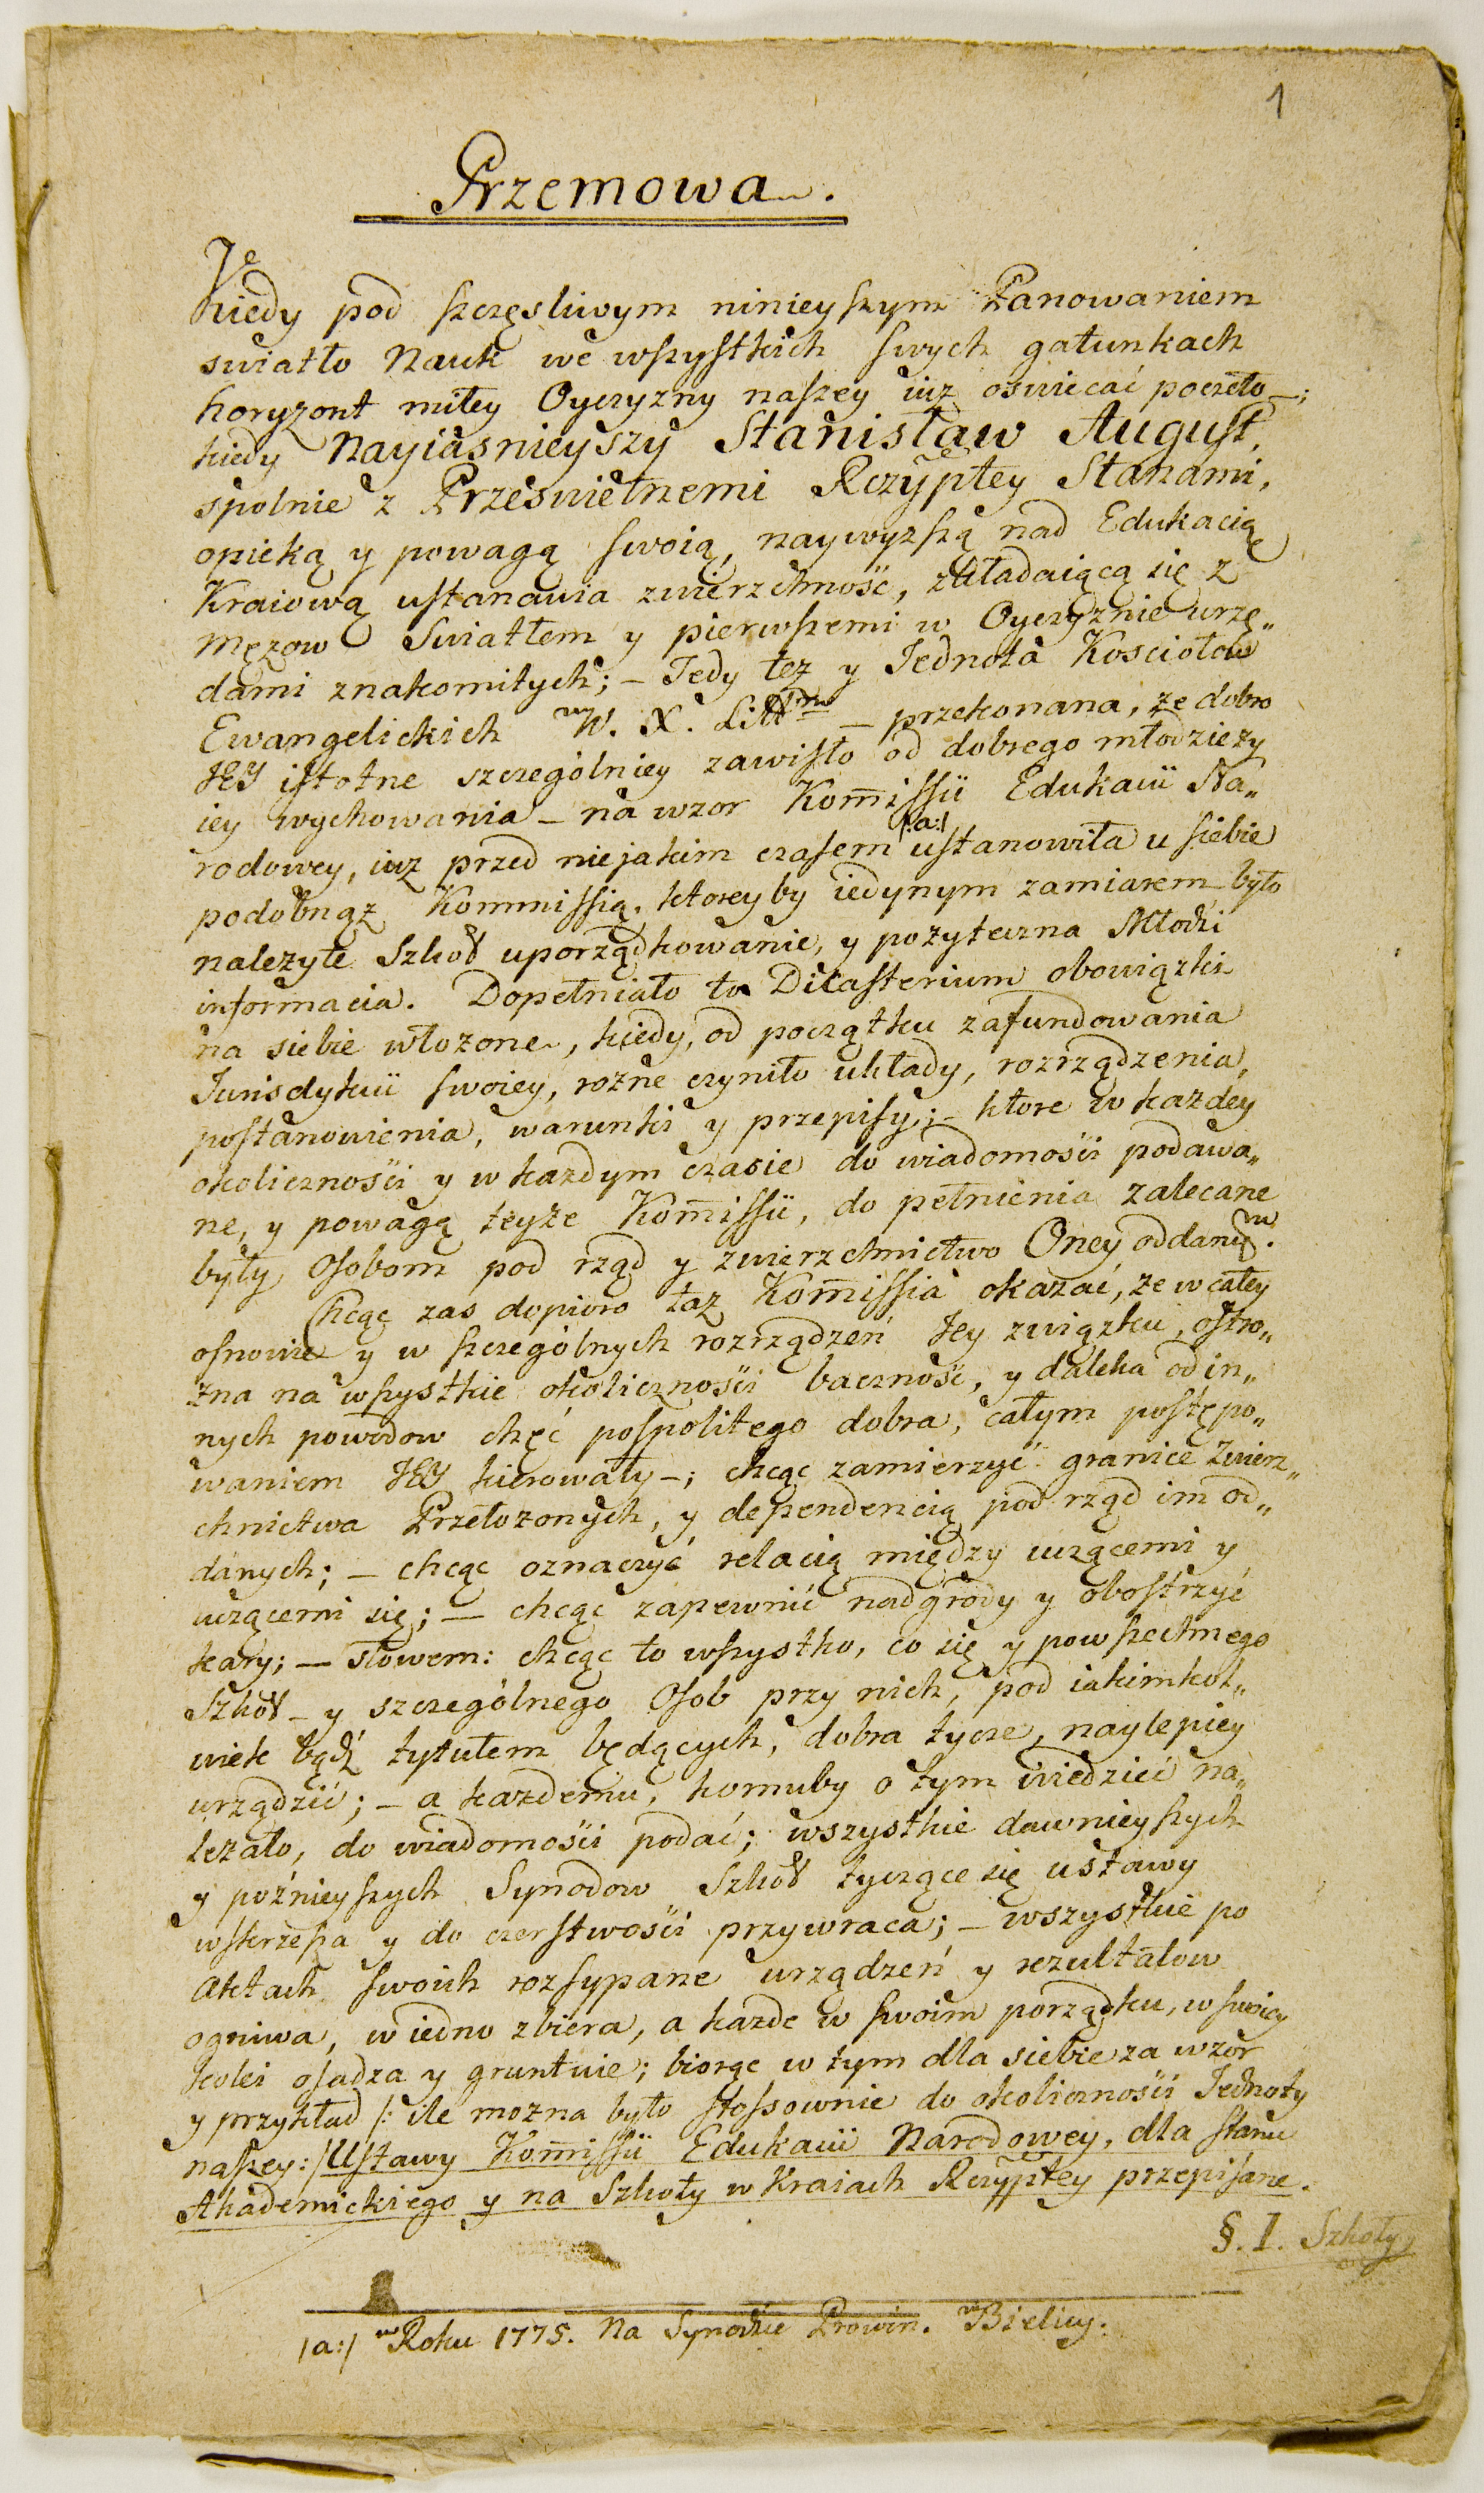 1
Przemowa.
Kiedy pod szczęsliwym ninieyszym Panowaniem
swiatło Nauk we wszystkich swych gatunkach
horyzont miłey Oyczyzny naszey iuz oswiecać poczeło —;
kiedy Nayiasnieyszy Stanisław August,
spolnie z Przeswietnemi Rczyptey Stanami,
opieką y powagą swoią, naywyzszą nad Edukacią
Kraiową ustanawia zwierzchność, składaiącą się z
Męzow Swiatłem y pierwszemi w Oyczyznie urzę„
dami znakomitych; — Tedy tez y Jednota Kosciołow
Ewangelickich w W. X. Litt — przekonana, ze dobro
JEY istotne szczególniey zawisło od dobrego młodziezy
iey wychowania — na wzor Kom̄issii Edukacii Na„
rodowey, iuz przed niejakim czasem /:a:/ ustanowiła u siebie
podobnąz Kommissią, ktoreyby iedynym zamiarem było
nalezyte Szkoł uporządkowanie, y pozyteczna Młodzi
informacia. Dopełniało to Dicasterium obowiązki
na siebie włozone, kiedy, od początku zafundowania
Jurisdykcii swoiey, rozne czyniło układy, rozrządzenia,
postanowienia, warunki y przepisy; — ktore w kazdey
okoliczności y w kazdym czasie do wiadomości podawa„
ne, y powagą teyże Kom̄issii, do pełnienia zalecane
były Osobom pod rząd y zwierzchnictwo Oney oddanym.
Chcąc zas dopioro taz Kom̄issia okazać, ze w całey
osnowie y w szczególnych rozrządzeń Jey związku, ostro„
zna na wszystkie okoliczności baczność, y daleka od in„
nych powodow chęć pospolitego dobra, całym postępo„
waniem JEY kierowały —; chcąc zamierzyć granice Zwierz„
chnictwa Przełozonych, y dependencią pod rząd im od„
danych; — chcąc oznaczyć relacią między uczącemi y
uczącemi się; — chcąc zapewnić nadgrody y obostrzyć
kary; — słowem: chcąc to wszystko, co się y powszechnego
Szkoł — y szczególnego Osob przy nich, pod iakimkol„
wiek bądź tytułem będących, dobra tycze, naylepiey
urządzić; — a kazdemu, komuby o tym wiedzieć na„
lezało, do wiadomości podać; wszystkie dawnieyszych
y poźnieyszych Synodow Szkoł tyczące się ustawy
wskrzesza y do czerstwości przywraca; — wszystkie po
Aktach swoich rozsypane urządzeń y rezultatow
ogniwa, w iedno zbiera, a kazde w swoim porządku, w swoiey
kolei osadza y gruntuie; biorąc w tym dla siebie za wzor
y przykład /: ile mozna było stossownie do okoliczności Jednoty
naszey:/ Ustawy Kom̄issii Edukacii Narodowey, dla stanu
Akademickiego y na Szkoły w Kraiach Rczyptey przepisane.
§. I. Szkoły
/a:/ w Roku 1775. Na Synodzie Prowin. w Bielicy.